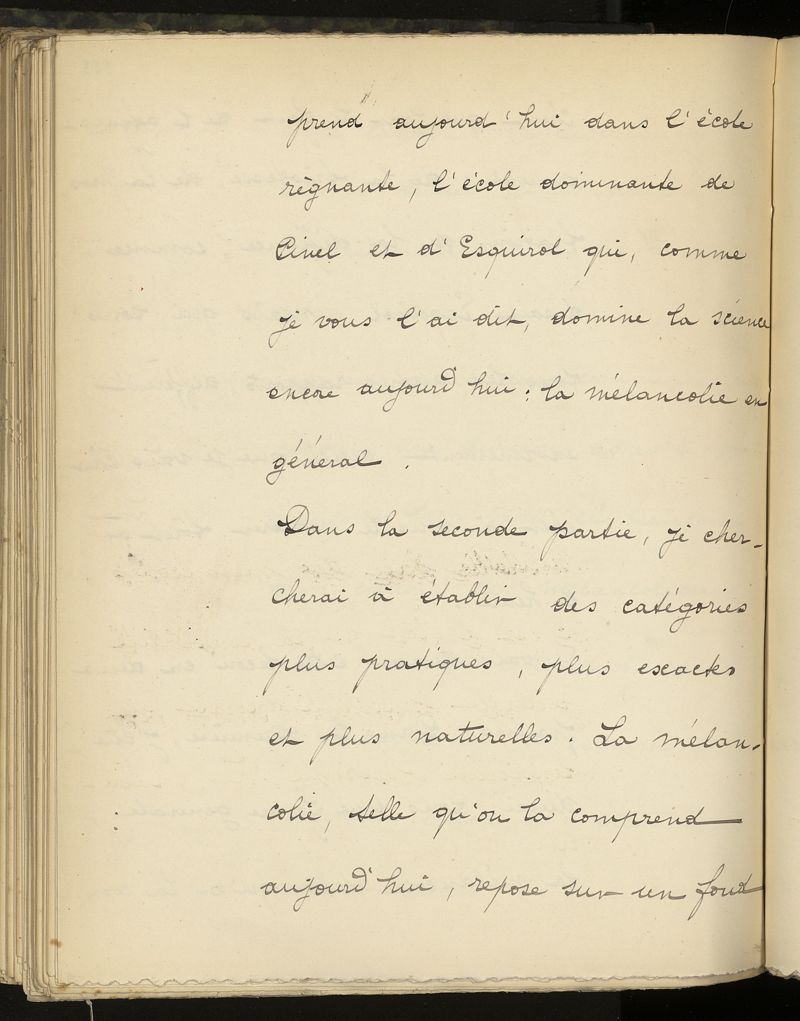 prend aujourd'hui dans l'école
règnante, l'école dominante de
Pinel et d'Esquirol qui, comme
je vous l'ai dit, domine la science
encore aujourd'hui : la mélancolie en
général.
Dans la seconde partie, je cher-
cherai à établir des catégories
plus pratiques, plus exactes
et plus naturelles. La mélan-
colie, telle qu'on la comprend
aujourd'hui, repose sur un fond